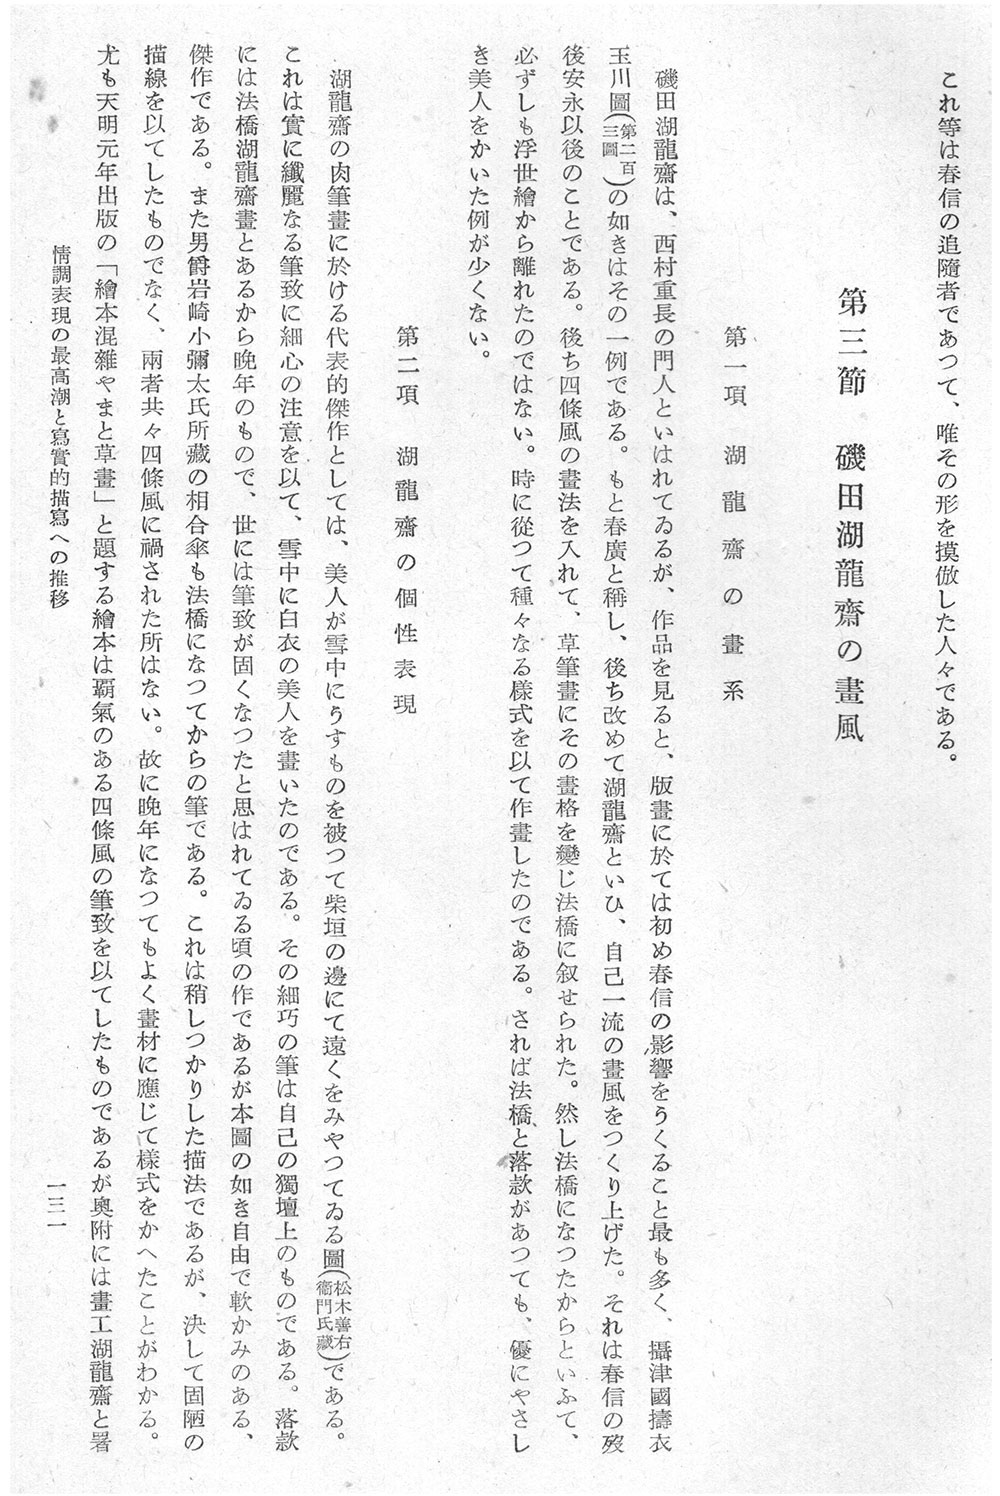 これ等は春信の追隨者であつて、唯その形を摸倣した人々である。
第三節　磯田湖龍齋の畫風
第一項　湖龍齋の畫系
磯田湖龍齋は、西村重長の門人といはれてゐるが、作品を見ると、版畫に於ては初め春信の影響をうくること最も多く、攝津國擣衣
玉川圖(第二百三圖)の如きはその一例である。もと春廣と稱し、後ち改めて湖龍齋といひ、自己一流の畫風をつくり上げた。それは春信の歿
後安永以後のことである。後ち四條風の畫法を入れて、草筆畫にその畫格を變じ法橋に叙せられた。然し法橋になつたからといふて、
必ずしも浮世繪から離れたのではない。時に從つて種々なる樣式を以て作畫したのである。されば法橋と落款があつても、優にやさし
き美人をかいた例が少くない。
第二項　湖龍齋の個性表現
湖龍齋の肉筆畫に於ける代表的傑作としては、美人が雪中にうすものを被つて柴垣の邊にて遠くをみやつてゐる圖(松木善右衞門氏藏)である。
これは實に纖麗なる筆致に細心の注意を以て、雪中に白衣の美人を畫いたのである。その細巧の筆は自己の獨壇上のものである。落款
には法橋湖龍齋畫とあるから晩年のもので、世には筆致が固くなつたと思はれてゐる頃の作であるが本圖の如き自由で軟かみのある、
傑作である。また男爵岩崎小彌太氏所藏の相合傘も法橋になつてからの筆である。これは稍しつかりした描法であるが、決して固陋の
描線を以てしたものでなく、兩者共々四條風に禍された所はない。故に晩年になつてもよく畫材に應じて樣式をかへたことがわかる。
尤も天明元年出版の「繪本混雜やまと草畫」と題する繪本は覇氣のある四條風の筆致を以てしたものであるが奧附には畫工湖龍齋と署
情調表現の最高潮と寫實的描寫への推移
一三一